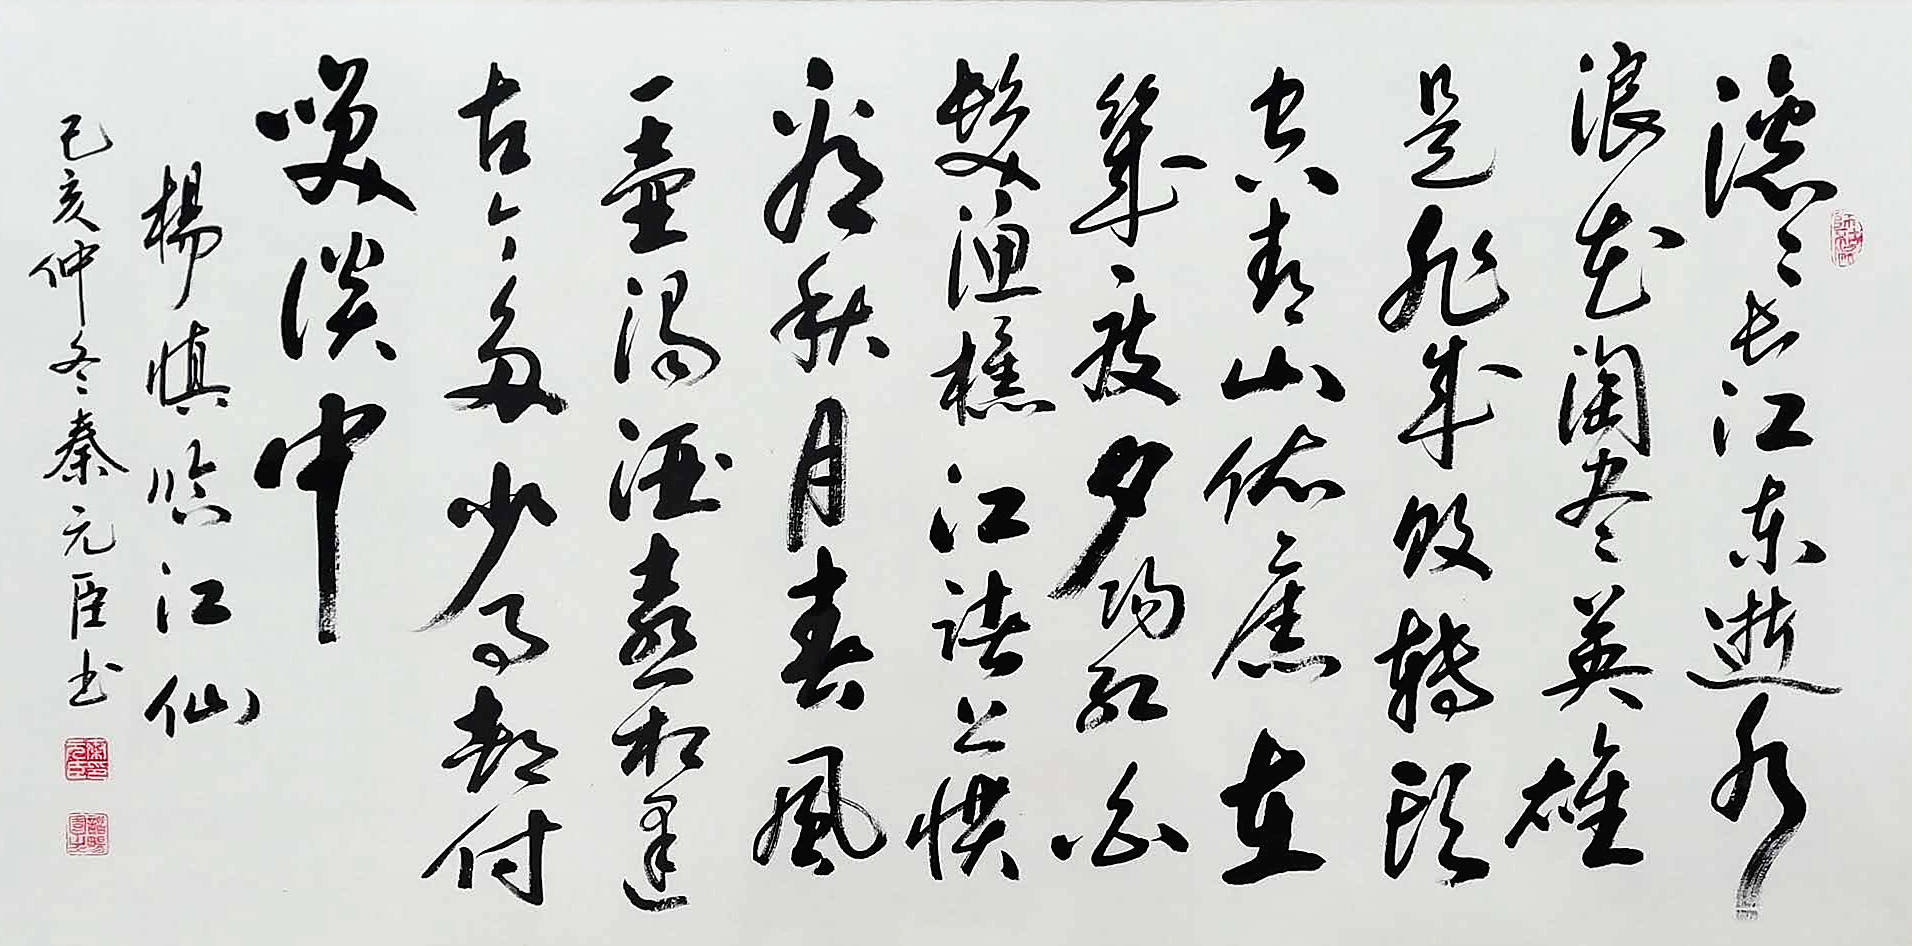 滚々长江东逝水
浪花淘尽英雄
是非成败转头
空青山依旧在
几度夕阳红白
髮渔樵江渚上惯
看秋月春風
一壶浊酒喜相逢
古今多少事都付
笑谈中
楊慎临江仙
己亥仲冬秦元臣书